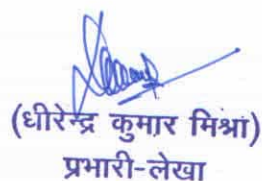 (धीरेन्द्र कुमार मिश्रा)
प्रभारी-लेखा